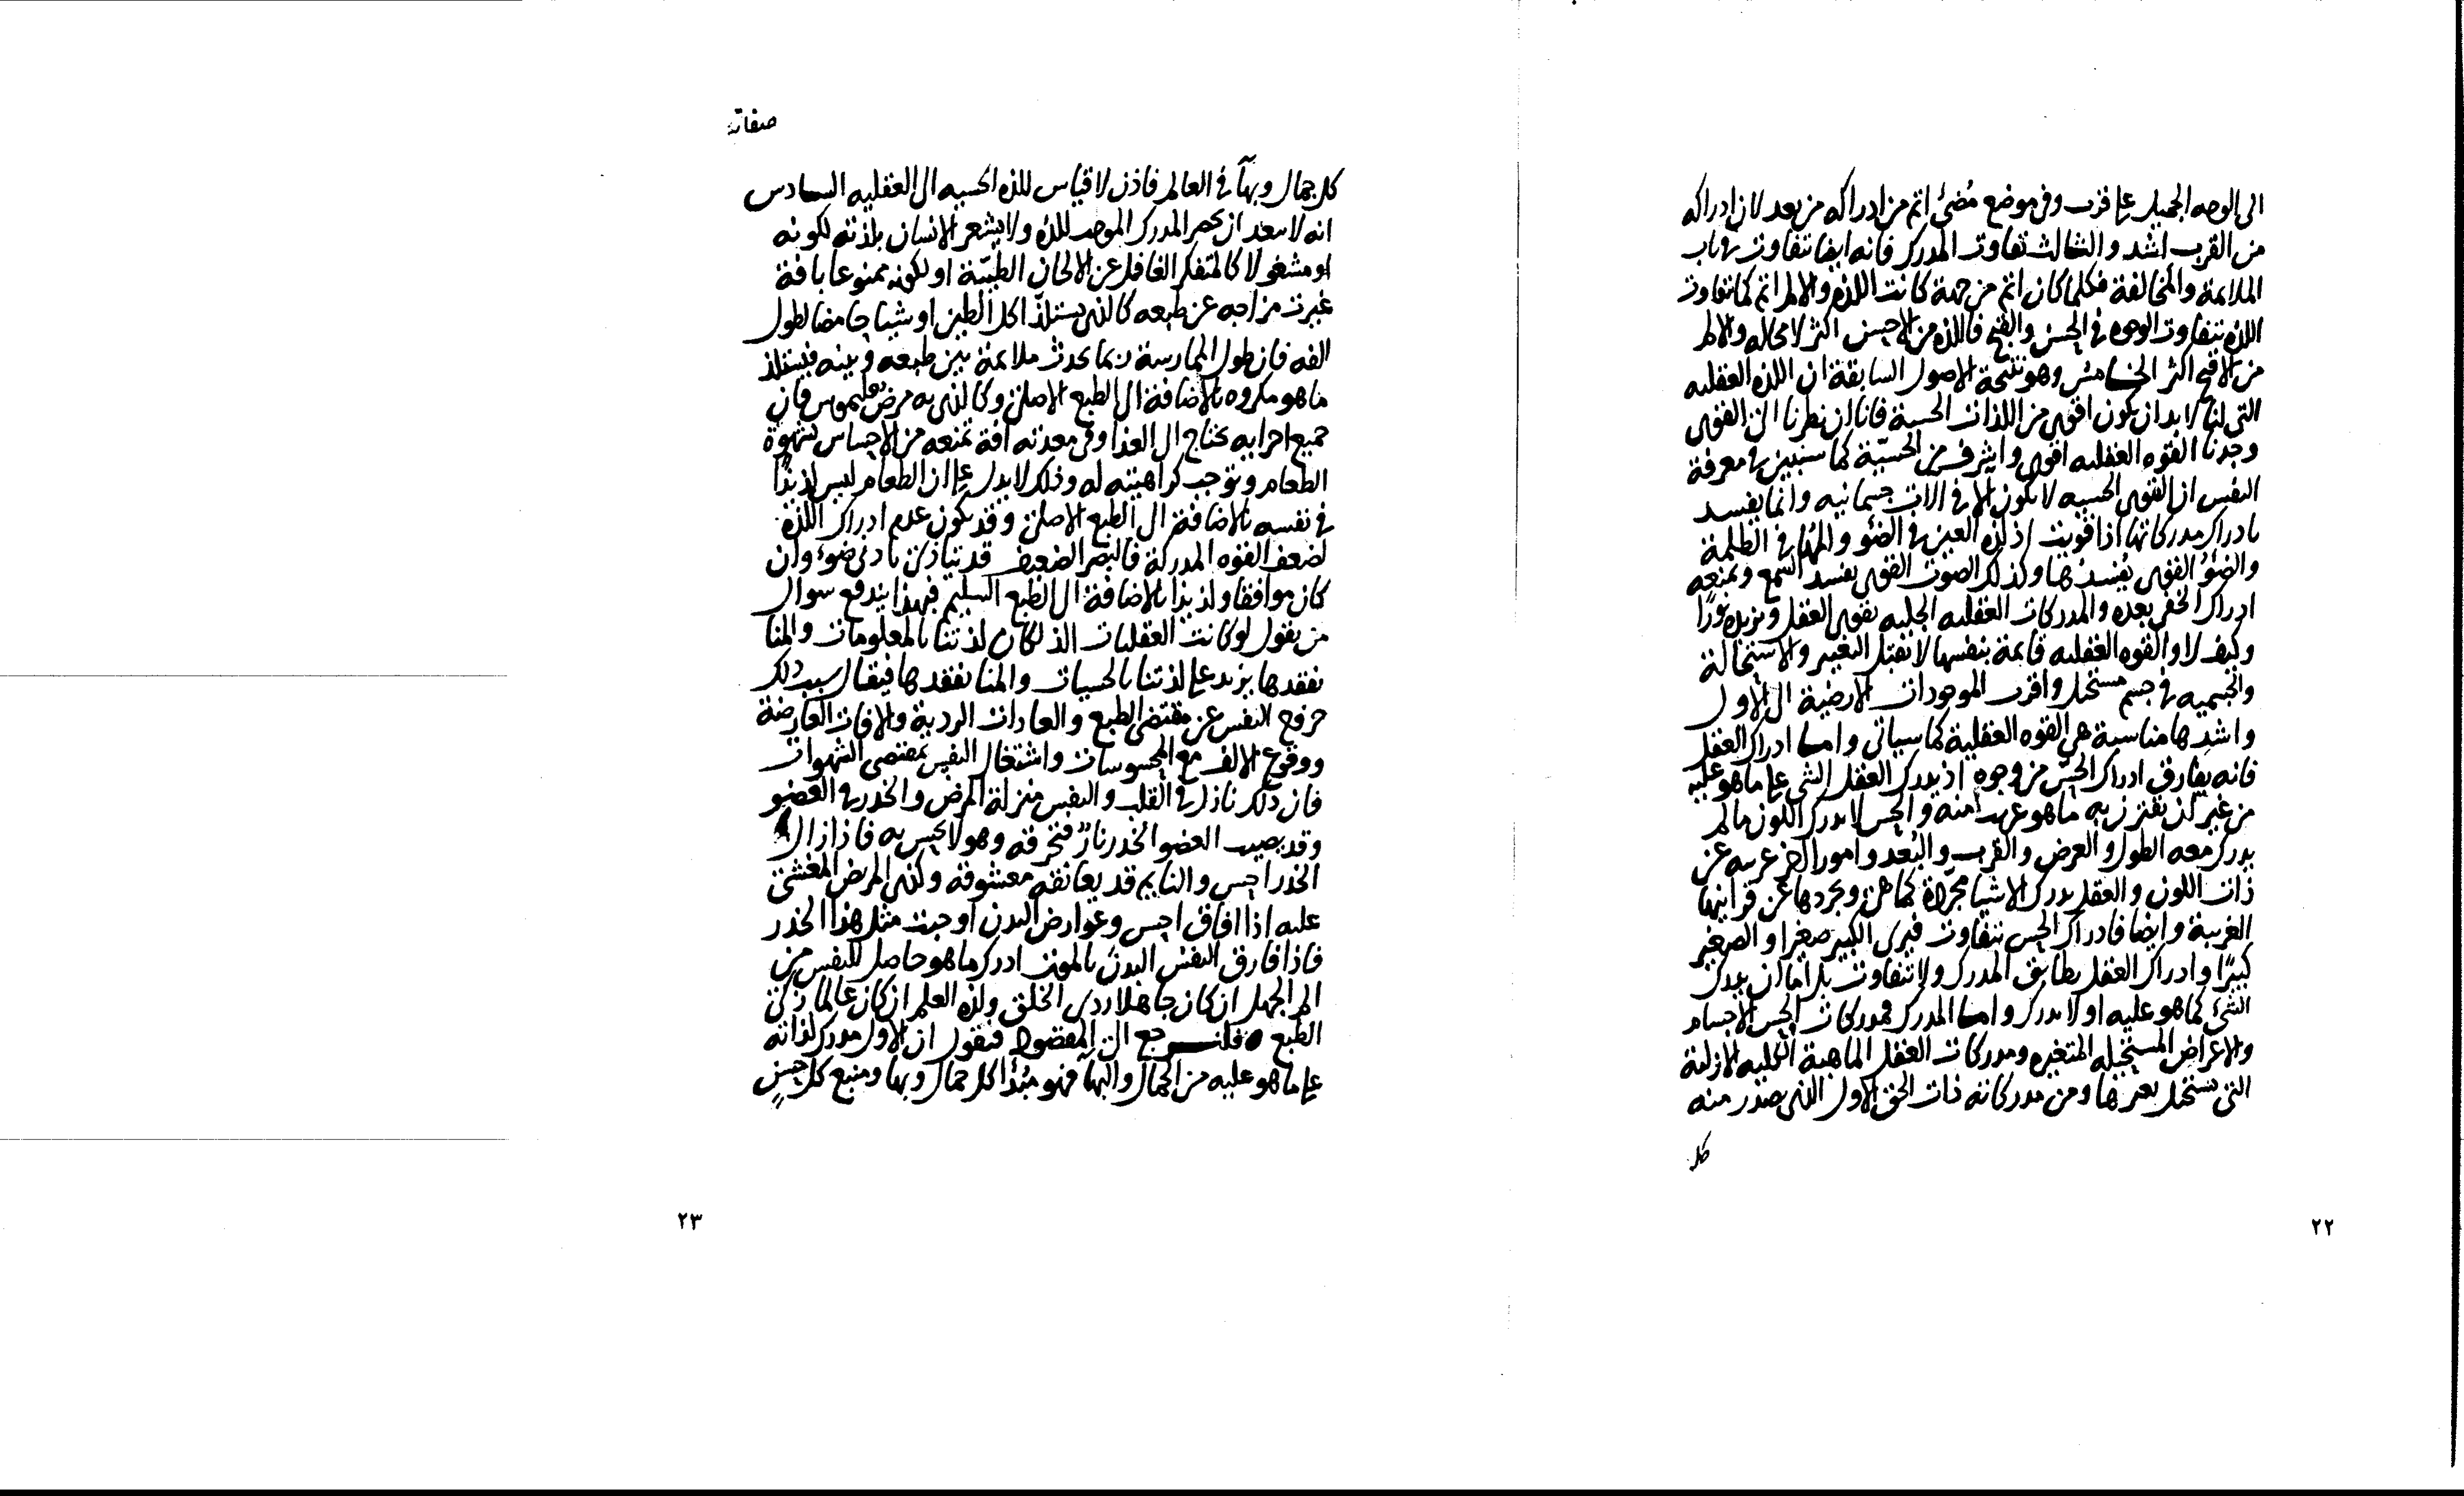 الى الوجه الجميل على قرب وفى موضع مُضئ اتم من ادراكه من بعد لان ادراكه
من القرب اشد والثالث تفاوت المدرك فانه ايضا تتفاوت فى باب
الملائمة والمخالفة فكلما كان اتم من جهة كانت اللذه والالم اتم كما تتفاوت
اللذه بتفاوت الوجوه فى الحسن والقبح فاللذه من الاحسن اكثر لا محاله والالم
من الاقبح اكثر الخامس وهو نتيجة الاصول السابقة ان اللذه العقليه
التى لنا لا بد ان يكون اقوى من اللذات الحسية فانا ان نظرنا الى القوى
وجدنا القوه العقليه اقوى واشرف من الحسيّة كما سنبين فى معرفة
النفس ان القوى الحسيه لا يكون الا فى الات جسمانيه وانما يفسد
بادراك مدركاتها اذا قويت اذ لذه العين فى الضوء والمها فى الظلمة
والضوء القوى يفسدها وكذلك الصوت القوى يفسد السمع ويمنعه
ادراك الخفى بعده والمدركات العقليه الجليه يقوى العقل ويزيده نورًا
وكيف لا والقوه العقليه قايمة بنفسها لا تقبل التغير والاستحالة
والجسميه فى جسم مستحيل واقرب الموجودات الارضية الى الاول
واشدها مناسبة هى القوه العقلية كما سياتى واما ادراك العقل
فانه يفارق ادراك الحس من وجوه اذ يدرك العقل الشى على ما هو عليه
من غير ان يقترن به ما هو غريب منه والحس لا يدرك اللون ما لم
يدرك معه الطول والعرض والقرب والبُعد وامورا اخر غريبه عن
ذات اللون والعقل يدرك الاشيا مجرّدة كما هى ويجردها عن قراينها
الغريبة وايضا فادراك الحس يتفاوت فيرى الكبير صغيرا والصغير
كبيرًا وادراك العقل يطابق المدرك ولا يتفاوت بل اما ان يدرك
الشئ كما هو عليه او لا يدرك واما المدرك فمدركات الحس الاجسام
والاعراض المستحيله المتغيره ومدركات العقل الماهية الكليه الازلية
التى يستحيل تغيرها ومن مدركاته ذات الحق الاول الذى صدر منه
كل
٢٢
صفاته
كل جمال وبهآ فى العالم فاذن لا قياس للذه الحسيه الى العقليه السادس
انه لا يبعد ان يحضر المدرك الموجب للذه ولا يشعر الانسان بلذته لكونه
او مشغولا كالمتفكر الغافل عن الالحان الطيّبة او لكونه ممنوعا بافة
غيرت مزاجه عن طبعه كالذى يستلذّ اكل الطين او شيا حامضا لطول
الفه فان طول الممارسة ربما يحدث ملائمة بين طبعه وبينه فيستلذ
ما هو مكروه بالاضافة الى الطبع الاصلى وكالذى به مرض بوليموس فان
جميع اجزايه يحتاج الى الغذا وفى معدته افة تمنعه من الاحساس بشهوة
الطعام وتوجب كراهيته له وذلك لا يدل على ان الطعام ليس لذيذًا
فى نفسه بالاضافة الى الطبع الاصلى وقد يكون عدم ادراك اللذه
لضعف القوه المدركة فالبصر الضعيف قد يتاذى بادنى ضوء وان
كان موافقا ولذيذا بالاضافة الى الطبع السليم فبهذا يندفع سوال
من يقول لو كانت العقليات الذ لكان لذتنا بالمعلومات والمنا
بفقدها يزيد على لذتنا بالحسيات والمنا بفقدها فيقال سبب ذلك
خروج النفس عن مقتضى الطبع والعادات الردية والافات العارضة
ووقوع الالف مع المحسوسات واشتغال النفس بمقتضى الشهوات
فان ذلك نازل فى القلب والنفس منزلة المرض والخدر فى العضو
وقد يصيب العضو الخدر نارٌ فتحرقه وهو لا يحس به فاذا زال
الخدر احس والنايم قد يعانقه معشوقه وكذى المرض المغشى
عليه اذا افاق احس وعوارض البدن اوجبت مثل هذا الخدر
فاذا فارق النفس البدن بالموت ادرك ما هو حاصل للنفس من
الم الجهل ان كان جاهلا ردى الخلق ولذه العلم ان كان عالما زكى
الطبع فلنرجع الى المقصود فنقول ان الاول مدرك لذاته
على ما هو عليه من الجمال والبهآ فهو مبدأ كل جمال وبها ومنبع كل حسنٍ
٢٣